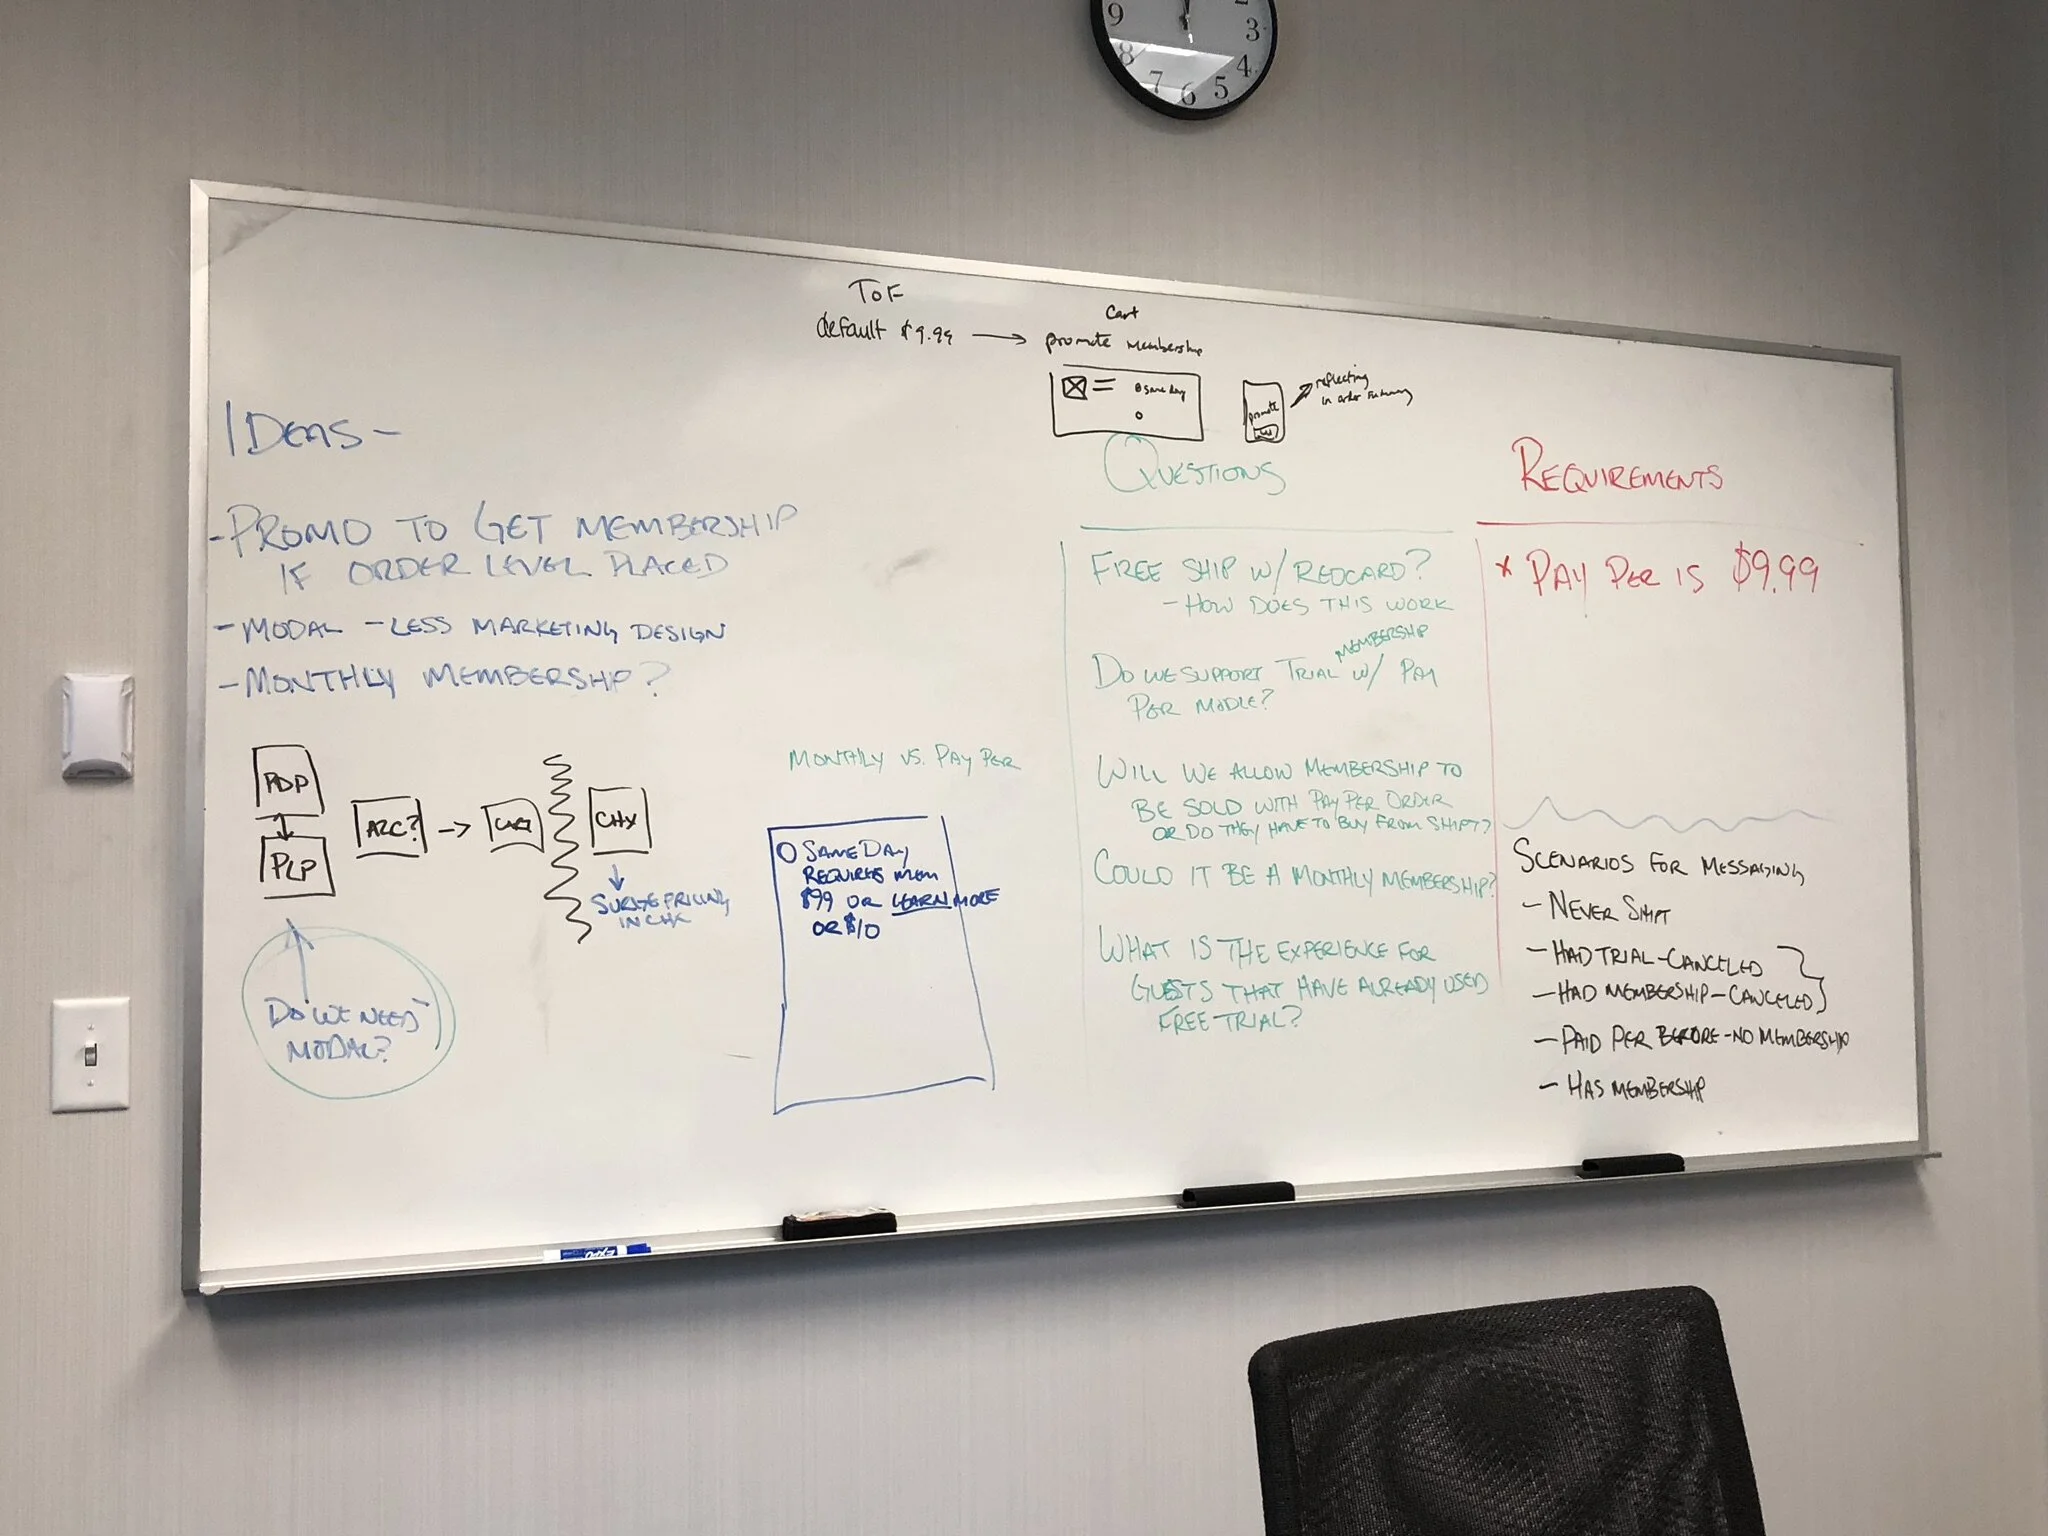 9 2 3 8 4 7 6 5
ToF
default $9.99
Cart
promote membership
same day
promote
reflecting
in order summary
IDEAS -
- PROMO TO GET MEMBERSHIP
IF ORDER LEVEL PLACED
- MODAL - LESS MARKETING DESIGN
- MONTHLY MEMBERSHIP?
PDP
PLP
ARC?
CHX
SURGE PRICING
IN CHX
DO WE NEED
MODAL?
MONTHLY VS. PAY PER
SAME DAY
REQUIRES MEM
$99 OR LEARN MORE
OR $10
QUESTIONS
FREE SHIP W/ REDCARD?
- HOW DOES THIS WORK
MEMBERSHIP
DO WE SUPPORT TRIAL W/ PAY
PER MODLE?
WILL WE ALLOW MEMBERSHIP TO
BE SOLD WITH PAY PER ORDER
OR DO THEY HAVE TO BUY FROM SHIPT?
COULD IT BE A MONTHLY MEMBERSHIP?
WHAT IS THE EXPERIENCE FOR
GUESTS THAT HAVE ALREADY USED
FREE TRIAL?
REQUIREMENTS
* PAY PER IS $9.99
SCENARIOS FOR MESSAGING
- NEVER SHIPT
- HAD TRIAL - CANCELED
- HAD MEMBERSHIP - CANCELED
- PAID PER BEFORE - NO MEMBERSHIP
- HAS MEMBERSHIP
EXPO